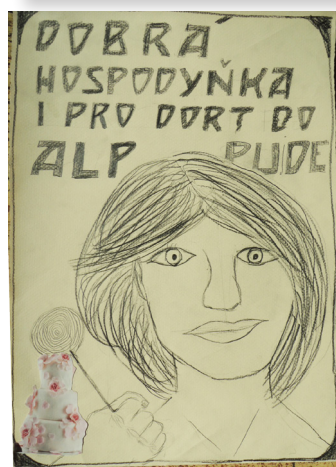 DOBRA
HOSPODYŇKA
I PRO DORT DO
ALP PUDE